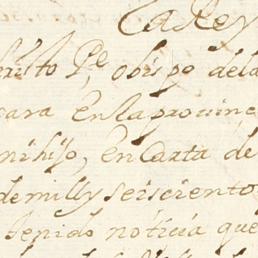 El Rey
christo Pe, obispo dela
para enla provinc
mi hijo, en Carta de
de mill y seiscientos
tenido noticia que